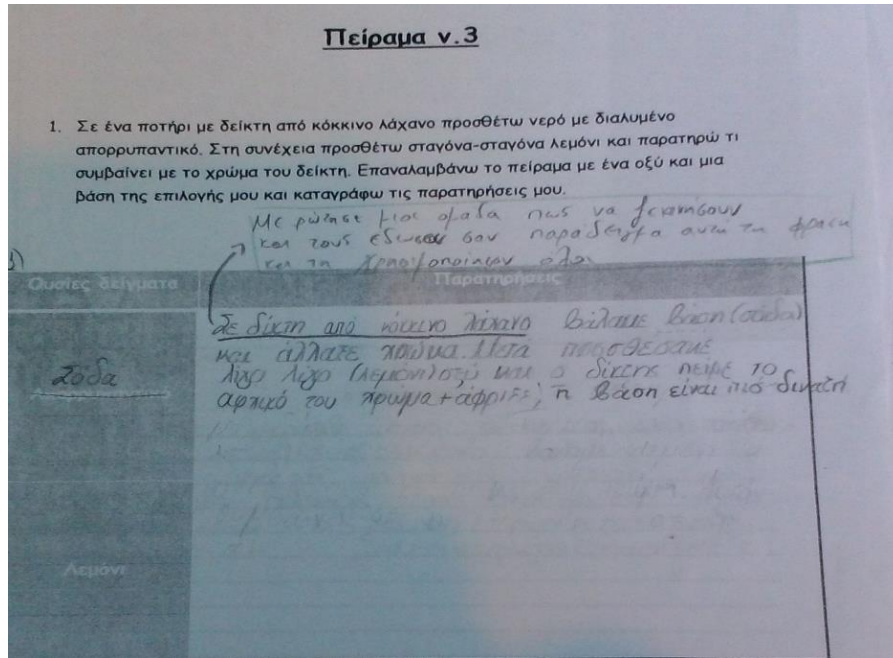 Πείραμα ν.3
1. Σε ένα ποτήρι με δείκτη από κόκκινο λάχανο προσθέτω νερό με διαλυμένο
απορρυπαντικό. Στη συνέχεια προσθέτω σταγόνα-σταγόνα λεμόνι και παρατηρώ τι
συμβαίνει με το χρώμα του δείκτη. Επαναλαμβάνω το πείραμα με ένα οξύ και μια
βάση της επιλογής μου και καταγράφω τις παρατηρήσεις μου.
Με ρώτησε μια ομάδα πως να ξεκινήσουν
και τους έδωσα σαν παράδειγμα αυτή τη φράση
και τη χρησιμοποίησαν όλοι
Ουσίες δείγματα
Παρατηρήσεις
Σόδα
Σε δίκτη από κόκινο λάχανο βάλαμε βάση (σόδα)
και άλλαξε χρώμα. Μετά προσθέσαμε
λίγο λίγο (λεμόνι) οξύ και ο δίκτης πειρε το
αρχικό του χρωμα + άφριξε, η βάση είναι πιό δυνατή
Λεμόνι